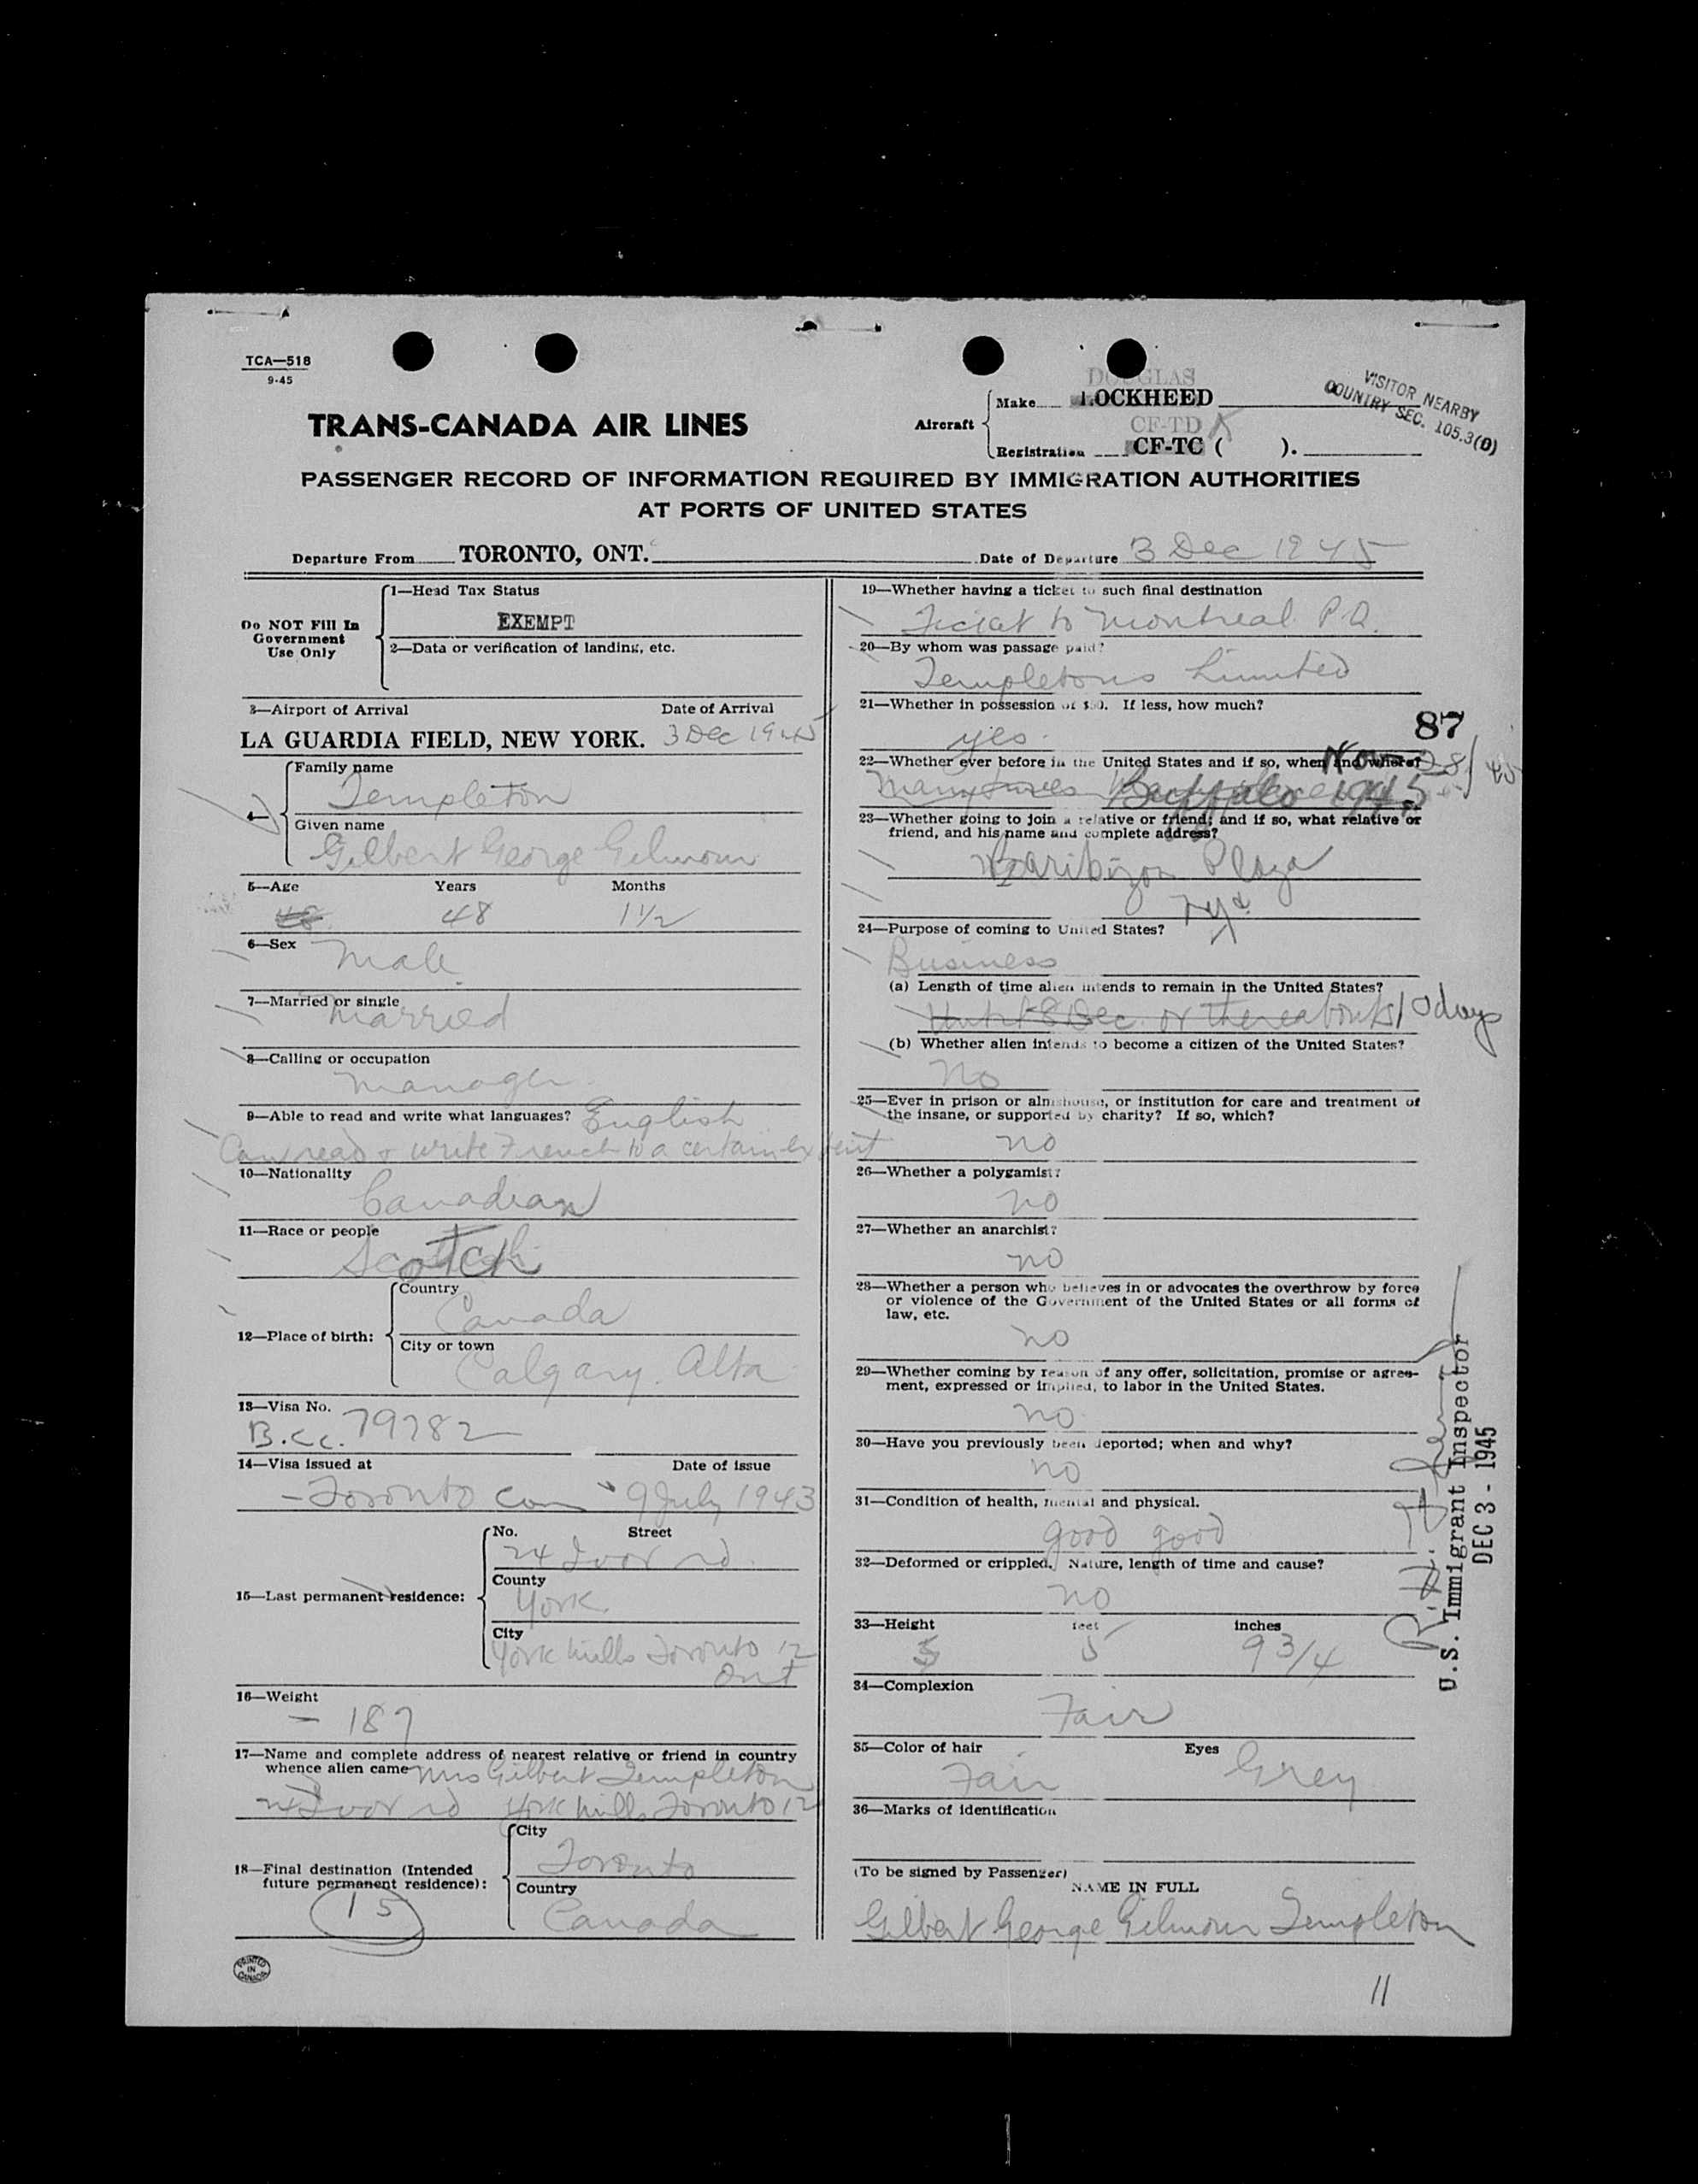 TCA—518
9-45
TRANS-CANADA AIR LINES
Aircraft
DOUGLAS
Make LOCKHEED
CF-TD K
Registration CF-TC ( ).
VISITOR NEARBY
COUNTRY SEC. 105.3(D)
PASSENGER RECORD OF INFORMATION REQUIRED BY IMMIGRATION AUTHORITIES
AT PORTS OF UNITED STATES
Departure From TORONTO, ONT. Date of Departure 3 Dec 1945
Do NOT Fill In
Government
Use Only
1—Head Tax Status
EXEMPT
2—Data or verification of landing, etc.
3—Airport of Arrival Date of Arrival
LA GUARDIA FIELD, NEW YORK. 3 Dec 1945
4—
Family name
Templeton
Given name
Gilbert George Gilmour
5—Age Years Months
48 48 1½
6—Sex
Male
7—Married or single
Married
8—Calling or occupation
Manager
9—Able to read and write what languages? English
Can read & write French to a certain extent
10—Nationality
Canadian
11—Race or people
Scotch
12—Place of birth:
Country
Canada
City or town
Calgary. Alta
13—Visa No.
B.C.C. 79782
14—Visa issued at Date of issue
Toronto 9 July 1943
15—Last permanent residence:
No. Street
24 Ivor rd.
County
York
City
York Mills Toronto 12
Ont
16—Weight
187
17—Name and complete address of nearest relative or friend in country
whence alien came Mrs Gilbert Templeton
24 Ivor rd York Mills Toronto 12
18—Final destination (Intended
future permanent residence):
City
Toronto
Country
Canada
15
PRINTED
IN
CANADA
19—Whether having a ticket to such final destination
Ticket to Montreal P.Q.
20—By whom was passage paid?
Templetons Limited
21—Whether in possession of $50. If less, how much?
87
yes
22—Whether ever before in the United States and if so, when and where? Nov 28/45
Many times Buffalo 1945
23—Whether going to join a relative or friend; and if so, what relative or
friend, and his name and complete address?
Barbizon Plaza
NYC
24—Purpose of coming to United States?
Business
(a) Length of time alien intends to remain in the United States?
Until 8 Dec. or thereabouts 10 days
(b) Whether alien intends to become a citizen of the United States?
No
25—Ever in prison or almshouse, or institution for care and treatment of
the insane, or supported by charity? If so, which?
no
26—Whether a polygamist?
no
27—Whether an anarchist?
no
28—Whether a person who believes in or advocates the overthrow by force
or violence of the Government of the United States or all forms of
law, etc.
no
29—Whether coming by reason of any offer, solicitation, promise or agree-
ment, expressed or implied, to labor in the United States.
no
30—Have you previously been deported; when and why?
no
31—Condition of health, mental and physical.
good good
32—Deformed or crippled. Nature, length of time and cause?
no
33—Height feet inches
5 5 9 3/4
34—Complexion
Fair
35—Color of hair Eyes
Fair Grey
36—Marks of identification
(To be signed by Passenger)
NAME IN FULL
Gilbert George Gilmour Templeton
U.S. Immigrant Inspector
DEC 3 - 1945
11